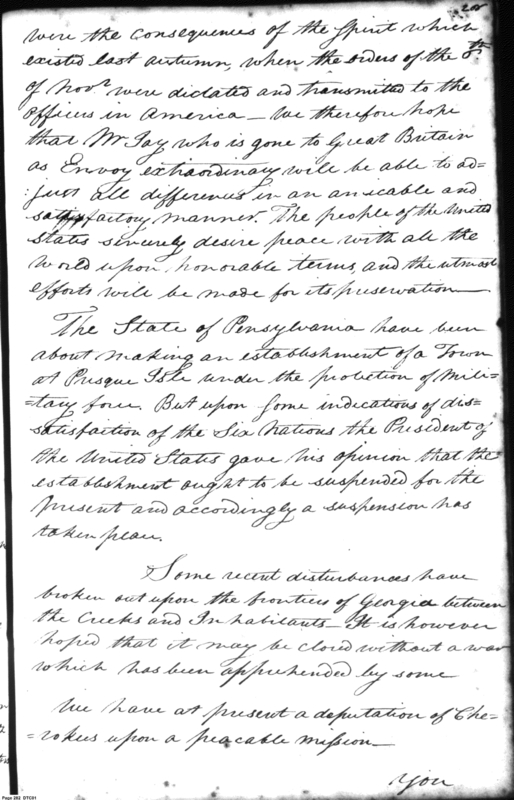 were the consequences of the Spirit which
existed last autumn, when the orders of the 6th
of Novr were dictated and transmited to the
Officers in America — We therefore hope
that Mr Jay who is gone to Great Britain
as Envoy extraordinary will be able to ad=
:just all differences in an amicable and
satisfactory manner. The people of the United
States sincerely desire peace with all the
World upon honorable terms, and the utmost
efforts will be made for its preservation —
The State of Pensylvania have been
about making an establishment of a Town
at Presque Isle under the protection of Mili=
=tary force. But upon some indications of dis=
satisfaction of the Six Nations the President of
the United States gave his opinion that the
establishment ought to be suspended for the
present and accordingly a suspension has
taken place.
Some recent disturbances have
broken out upon the frontiers of Georgia between
the Creeks and Inhabitants — It is however
hoped that it may be closed without a war
which has been apprehended by some
We have at present a deputation of Che=
=rokees upon a peacable mission —
You
Page 262 DTC01